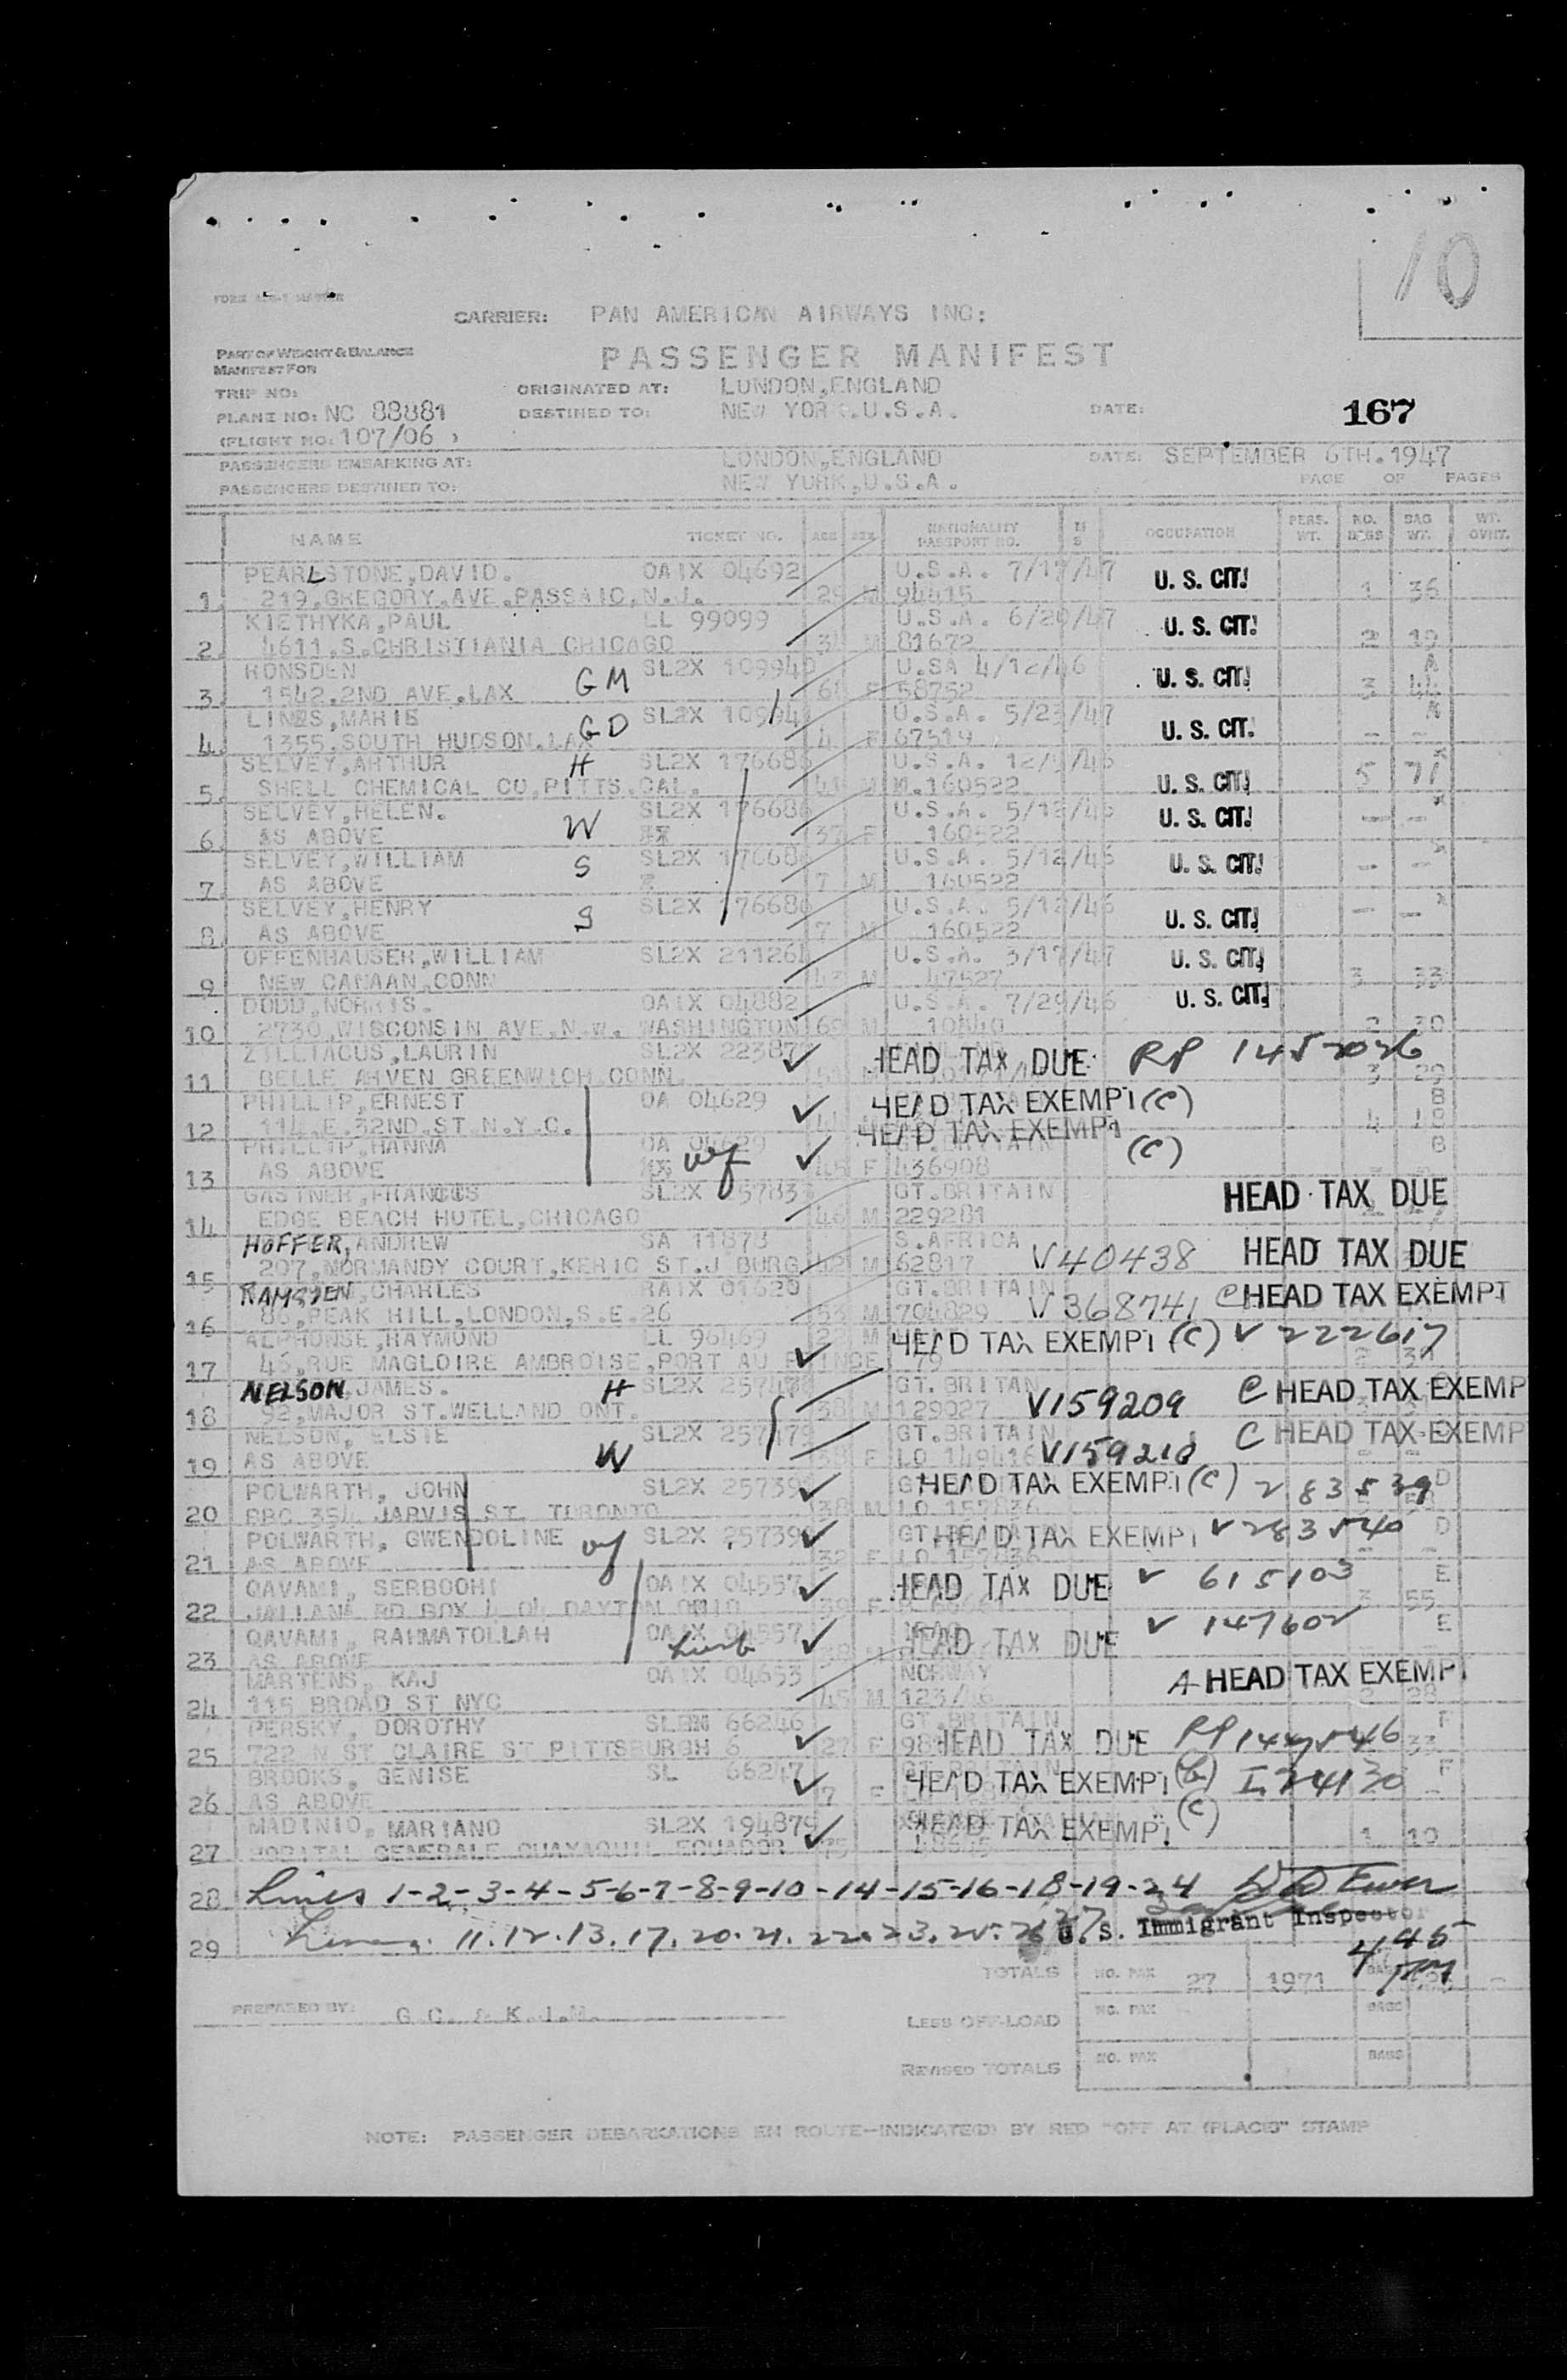 10
CARRIER: PAN AMERICAN AIRWAYS INC:
PART OF WEIGHT & BALANCE
MANIFEST FOR
PASSENGER MANIFEST
TRIP NO:
ORIGINATED AT: LONDON,ENGLAND
PLANE NO: NC 88881
DESTINED TO: NEW YORK.U.S.A.
DATE: 167
(FLIGHT NO: 107/06 )
PASSENGERS EMBARKING AT: LONDON,ENGLAND DATE: SEPTEMBER 6TH.1947
PASSENGERS DESTINED TO: NEW YORK,U.S.A. PAGE OF PAGES
NAME TICKET NO. AGE SEX NATIONALITY PASSPORT NO. OCCUPATION PERS. WT. NO. BAGS BAG WT. WT. OVHT.
PEARLSTONE,DAVID. OAIX 04692 U.S.A. 7/17/47 U. S. CIT.
1. 219,GREGORY.AVE.PASSAIC,N.J. 29 M 94415 1 36
KIETHYKA,PAUL LL 99099 U.S.A. 6/20/47 U. S. CIT.
2. 4611.S.CHRISTIANIA CHICAGO M 81672 2 19
RONSDEN GM SL2X 109940 U.SA 4/12/46 U. S. CIT. A
3. 1542.2ND AVE.LAX F 58752 3 44
LINES,MARIE GD SL2X 109941 U.S.A. 5/23/47 U. S. CIT.
4. 1355.SOUTH HUDSON.LAX 4 F 67519 - -
SELVEY,ARTHUR H SL2X 176686 U.S.A. U. S. CIT.
5. SHELL CHEMICAL CO.PITTS.CAL. 41 M M.160522 5 71
SELVEY,HELEN. W SL2X 176686 U.S.A. 5/12/46 U. S. CIT.
6. AS ABOVE 37 F 160522 - -
SELVEY,WILLIAM S SL2X 176686 U.S.A. 5/12/46 U. S. CIT.
7. AS ABOVE 7 M 160522 - -
SELVEY,HENRY S SL2X 176686 U.S.A. 5/12/46 U. S. CIT.
8. AS ABOVE 7 M 160522 - -
OFFENHAUSER,WILLIAM SL2X 211261 U.S.A. 3/17/47 U. S. CIT.
9 NEW CANAAN,CONN 43 M 47527 3 33
DODD,NORRIS. OAIX 04882 U.S.A. 7/29/46 U. S. CIT.
10 2730,WISCONSIN AVE.N.W. WASHINGTON 69 M 10440 2 30
ZILLIACUS,LAURIN SL2X HEAD TAX DUE RP
11 BELLE AHVEN GREENWICH CONN. 3 29
PHILLIP,ERNEST OA 04629 HEAD TAX EXEMPT (C) B
12 114.E.32ND.ST.N.Y.C. 4
PHILLIP,HANNA OA 04629 wf HEAD TAX EXEMPT (C) B
13 AS ABOVE F 436908
GASTNER,FRANCIS SL2X GT.BRITAIN HEAD TAX DUE
14 EDGE BEACH HOTEL,CHICAGO 46 M 229281
HOFFER,ANDREW SA 11873 S.AFRICA V40438 HEAD TAX DUE
15 207,NORMANDY COURT,KERIC ST.J BURG M 62817
RAMSDEN,CHARLES RAIX 01620 GT.BRITAIN V368741 C HEAD TAX EXEMPT
16 86,PEAK HILL,LONDON,S.E.26 53 M 704829
ALPHONSE,RAYMOND LL 96469 22 M HEAD TAX EXEMPT (C) V 222617
17 46,RUE MAGLOIRE AMBROISE,PORT AU PRINCE
NELSON,JAMES. H SL2X GT.BRITAN V159209 C HEAD TAX EXEMP
18 92,MAJOR ST.WELLAND ONT. 38 M 129027
NELSON, ELSIE W SL2X GT.BRITAIN V159210 C HEAD TAX EXEMP
19 AS ABOVE F LO 149416
POLWARTH, JOHN SL2X HEAD TAX EXEMPT (C) 283539 D
20 BBC 354 JARVIS ST. TORONTO 38 M LO 157836
POLWARTH, GWENDOLINE wf SL2X HEAD TAX EXEMPT V283540 D
21 AS ABOVE 32 F LO 157836
QAVAMI, SERBOOHI OAIX 04557 HEAD TAX DUE V 615103 E
22 DAYTON OHIO F 3 55
QAVAMI, RAHMATOLLAH OAIX 04557 HEAD TAX DUE V 147602 E
23 AS ABOVE M
MARTENS, KAJ OAIX 04653 NORWAY A HEAD TAX EXEMPT
24 115 BROAD ST NYC 45 M 123/46
PERSKY, DOROTHY 66246 GT.BRITAIN F
25 722 N ST CLAIRE ST PITTSBURGH 6 27 F HEAD TAX DUE RP 33
BROOKS, GENISE SL 66247 F
26 AS ABOVE 7 F HEAD TAX EXEMPT I. 24130
MADINIO, MARIANO SL2X 194879 HEAD TAX EXEMPT (C)
27 HOPITAL GENERALE GUAYAQUIL ECUADOR 1 10
28 Lines 1-2-3-4-5-6-7-8-9-10-14-15-16-18-19-24
29 11.12.13.17.20.21.22.23.25.26 27 U. S. Immigrant Inspector
TOTALS NO. PAX 27 1971 445 PM
PREPARED BY: G.C. & K.J.M.
LESS OFF-LOAD NO. PAX BAGS
REVISED TOTALS NO. PAX BAGS
NOTE: PASSENGER DEBARKATIONS EN ROUTE—INDICATE(D) BY RED "OFF AT (PLACE)" STAMP